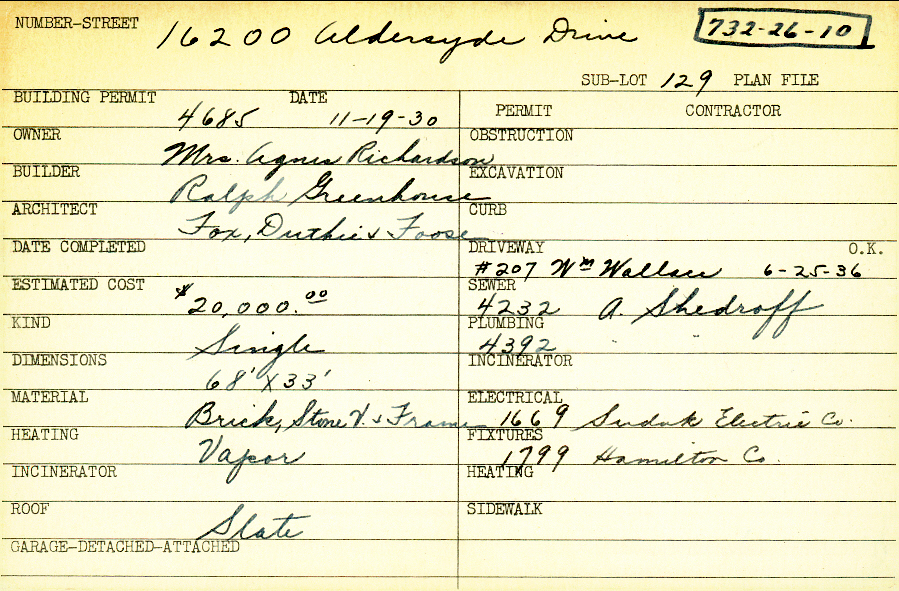 NUMBER-STREET 16200 Aldersyde Drive 732-26-10
SUB-LOT 129 PLAN FILE
BUILDING PERMIT 4685 DATE 11-19-30
OWNER Mrs. Agnes Richardson
BUILDER Ralph Greenhouse
ARCHITECT Fox, Duthie & Foose
DATE COMPLETED
ESTIMATED COST $20,000.00
KIND Single
DIMENSIONS 68' X 33'
MATERIAL Brick, Stone V. & Frame
HEATING Vapor
INCINERATOR
ROOF Slate
GARAGE-DETACHED-ATTACHED
PERMIT CONTRACTOR
OBSTRUCTION
EXCAVATION
CURB
DRIVEWAY O.K.
#207 Wm Wallace 6-25-36
SEWER
4232 A. Shedroff
PLUMBING
4392 " "
INCINERATOR
ELECTRICAL
1669 Electric Co.
FIXTURES
1799 Hamilton Co.
HEATING
SIDEWALK